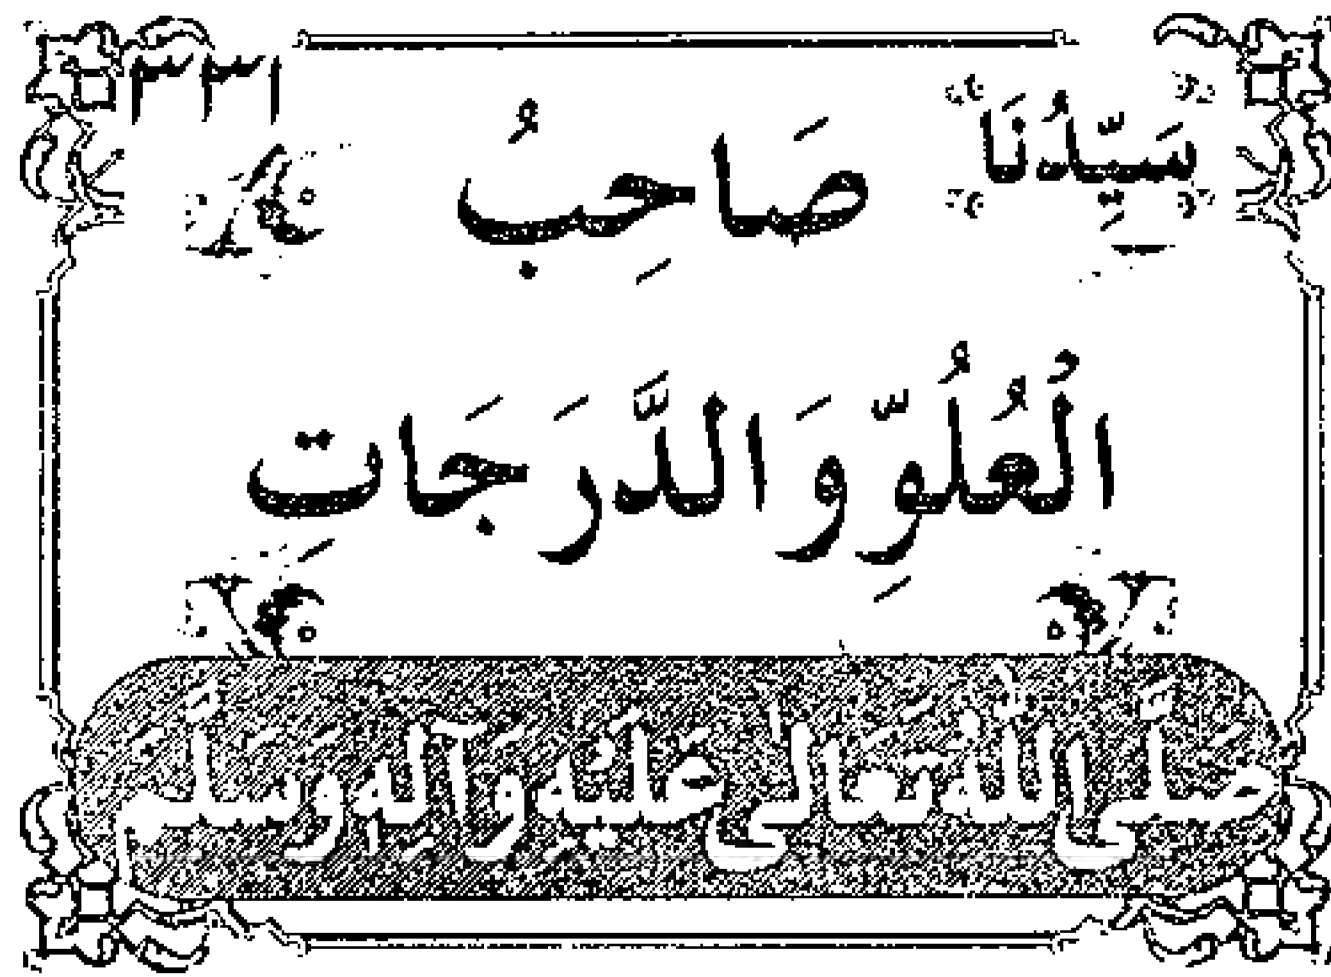 ٣٣١
سَيِّدُنَا صَاحِبُ
الْعُلُوِّ وَالدَّرَجَاتِ
صَلَّى اللّٰهُ تَعَالٰى عَلَيْهِ وَآلِهٖ وَسَلَّمَ